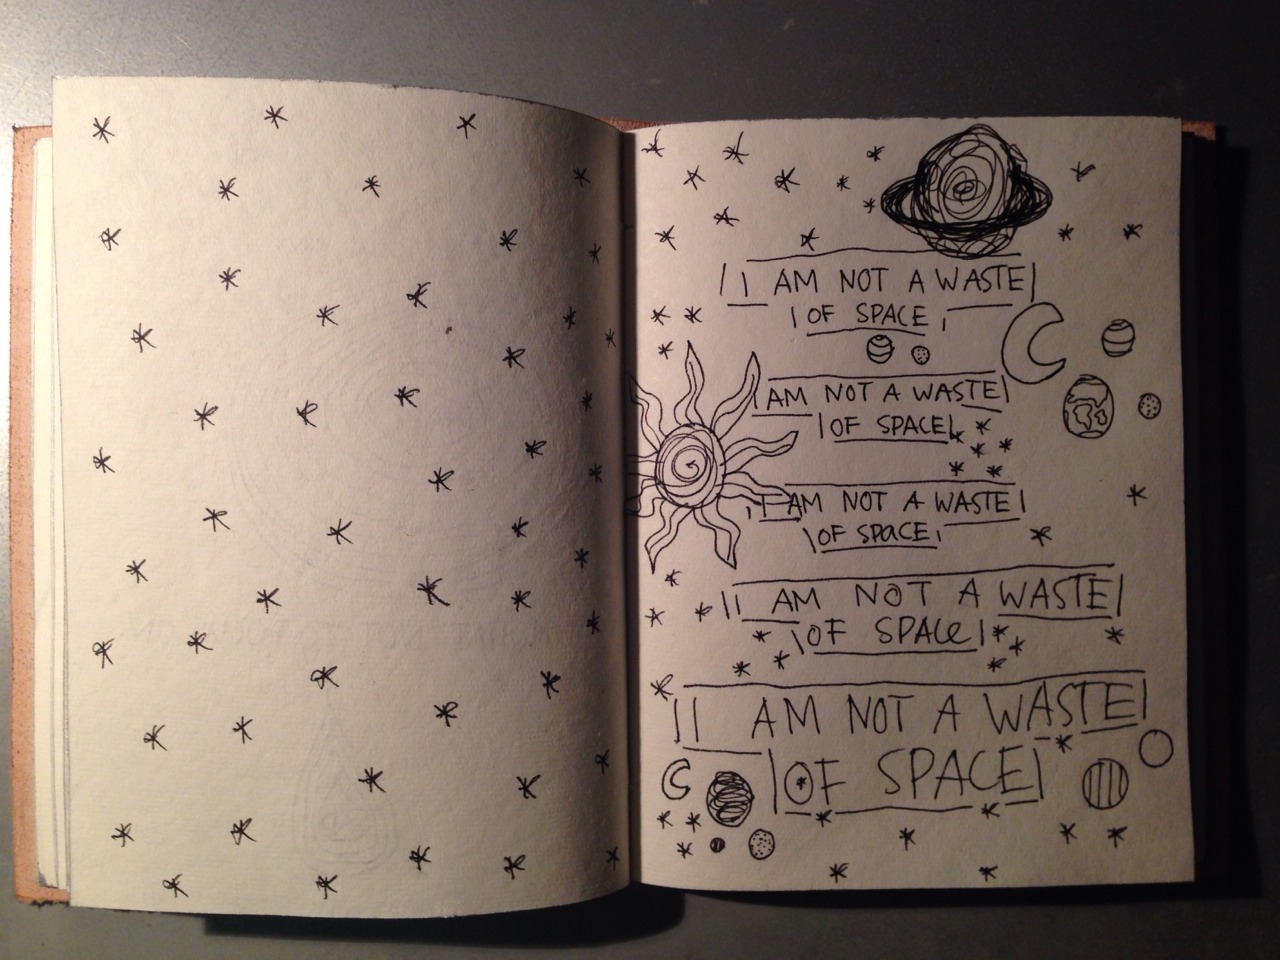 I AM NOT A WASTE
OF SPACE
AM NOT A WASTE
OF SPACE
I AM NOT A WASTE
OF SPACE
I AM NOT A WASTE
OF SPACE
I AM NOT A WASTE
OF SPACE